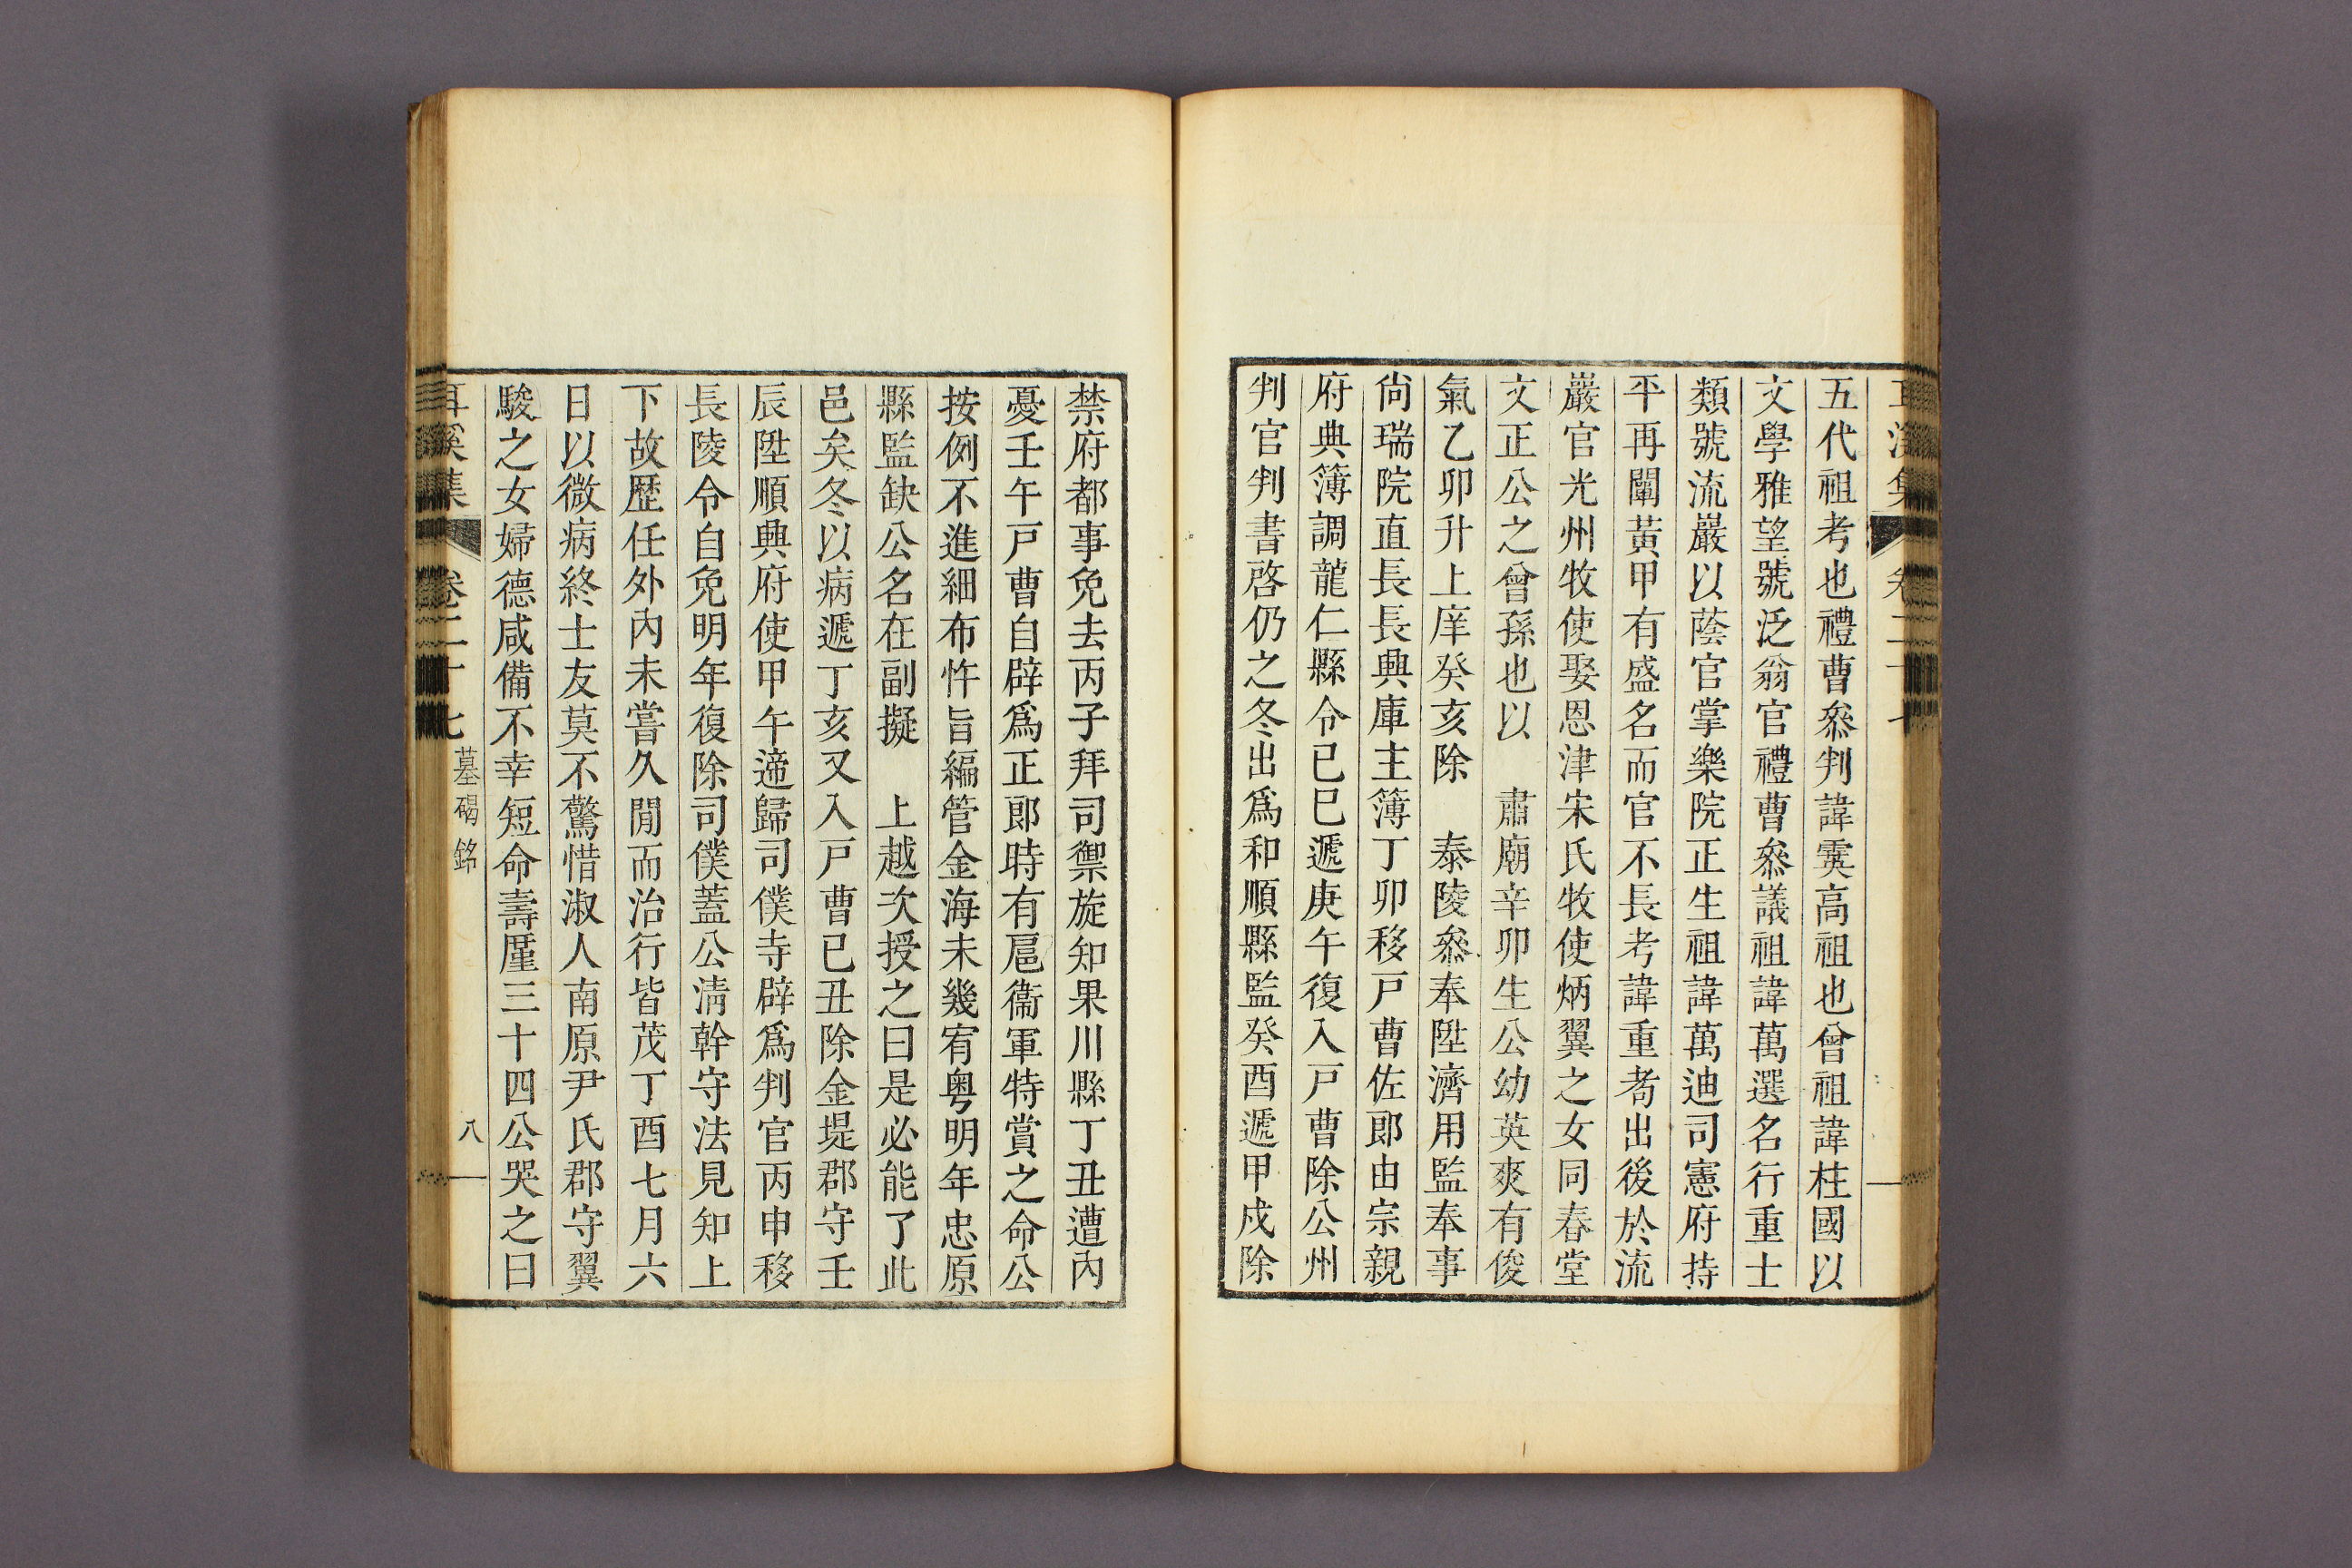 五代祖考也禮曹叅判諱霙高祖也曾祖諱柱國以
文學雅望號泛翁官禮曹叅議祖諱萬選名行重士
類號流巖以蔭官掌樂院正生祖諱萬迪司憲府持
平再闡黃甲有盛名而官不長考諱重耇出後於流
巖官光州牧使娶恩津宋氏牧使炳翼之女同春堂
文正公之曾孫也以 肅廟辛卯生公幼英爽有俊
氣乙卯升上庠癸亥除 泰陵叅奉陞濟用監奉事
尙瑞院直長長興庫主簿丁卯移戶曹佐郎由宗親
府典簿調龍仁縣令己巳遞庚午復入戶曹除公州
判官判書啓仍之冬出爲和順縣監癸酉遞甲戌除
禁府都事免去丙子拜司禦旋知果川縣丁丑遭內
憂壬午戶曹自辟爲正郎時有扈衞軍特賞之命公
按例不進細布忤旨編管金海未幾宥粤明年忠原
縣監缺公名在副擬 上越次授之曰是必能了此
邑矣冬以病遞丁亥又入戶曹己丑除金堤郡守壬
辰陞順興府使甲午遞歸司僕寺辟爲判官丙申移
長陵令自免明年復除司僕蓋公淸幹守法見知上
下故歷任外內未嘗久閒而治行皆茂丁酉七月六
日以微病終士友莫不驚惜淑人南原尹氏郡守翼
駿之女婦德咸備不幸短命壽廑三十四公哭之曰
耳溪集 卷二十七 墓碣銘 八